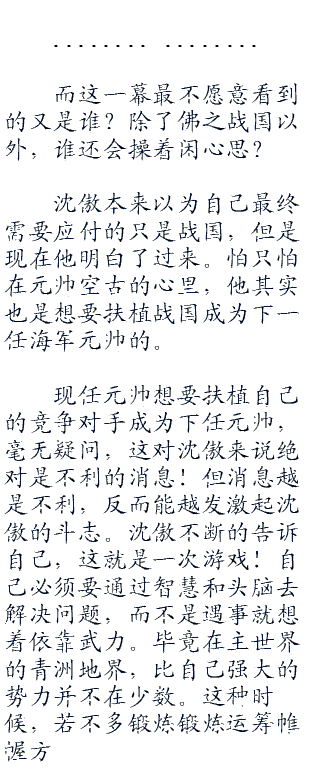 ........ ........
而这一幕最不愿意看到
的又是谁？除了佛之战国以
外，谁还会操着闲心思？
沈傲本来以为自己最终
需要应付的只是战国，但是
现在他明白了过来。怕只怕
在元帅空古的心里，他其实
也是想要扶植战国成为下一
任海军元帅的。
现任元帅想要扶植自己
的竞争对手成为下任元帅，
毫无疑问，这对沈傲来说绝
对是不利的消息！但消息越
是不利，反而能越发激起沈
傲的斗志。沈傲不断的告诉
自己，这就是一次游戏！自
己必须要通过智慧和头脑去
解决问题，而不是遇事就想
着依靠武力。毕竟在主世界
的青洲地界，比自己强大的
势力并不在少数。这种时
候，若不多锻炼锻炼运筹帷
幄方